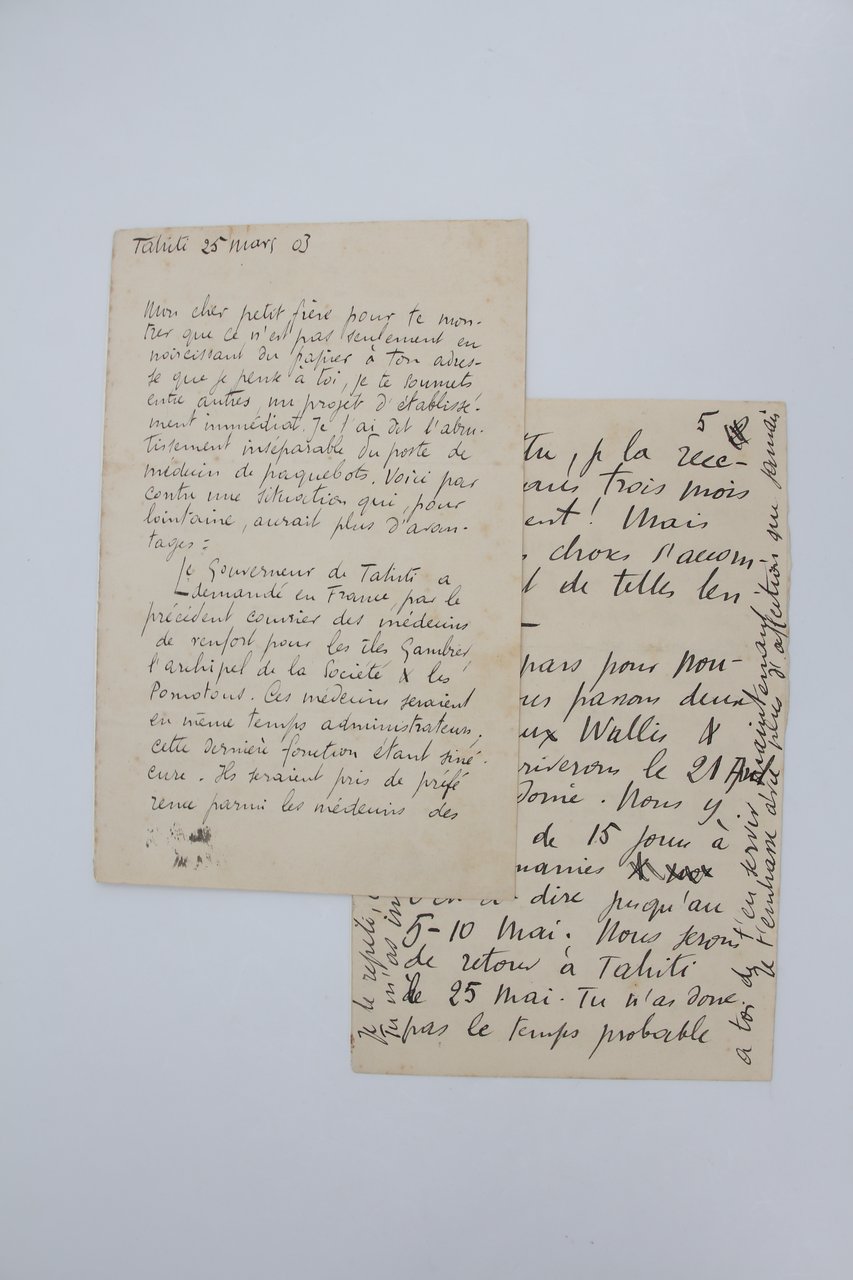 Tahiti 25 mars 03
Mon cher petit frère pour te mon-
trer que ce n'est pas seulement en
noircissant du papier à ton adres-
se que je pense à toi, je te soumets
entre autres, un projet d'établisse-
ment immédiat. Je t'ai dit l'abru-
tissement inséparable du poste de
médecin de paquebots. Voici par
contre une situation qui, pour
lointaine, aurait plus d'avan-
tages :
Le Gouverneur de Tahiti a
demandé en France, par le
précédent courrier des médecins
de renfort pour les îles Gambier,
l'archipel de la Société & les
Pomotous. Ces médecins seraient
en même temps administrateurs,
cette dernière fonction étant siné-
cure. Ils seraient pris de préfé
rence parmi les médecins des
5
, je la rece-
trois mois
ent ! Mais
choses s'accom-
de telles len
pars pour Nou-
passons deux
ux Wallis &
riverons le 21
. Nous y
de 15 jours à
dire jusqu'au
5-10 Mai. Nous serons
de retour à Tahiti
le 25 Mai. Tu n'as donc
pas le temps probable
Je le répète,
Tu m'as
à toi de t'en servir maintenant
Je t'embrasse avec plus d'affection que jamais